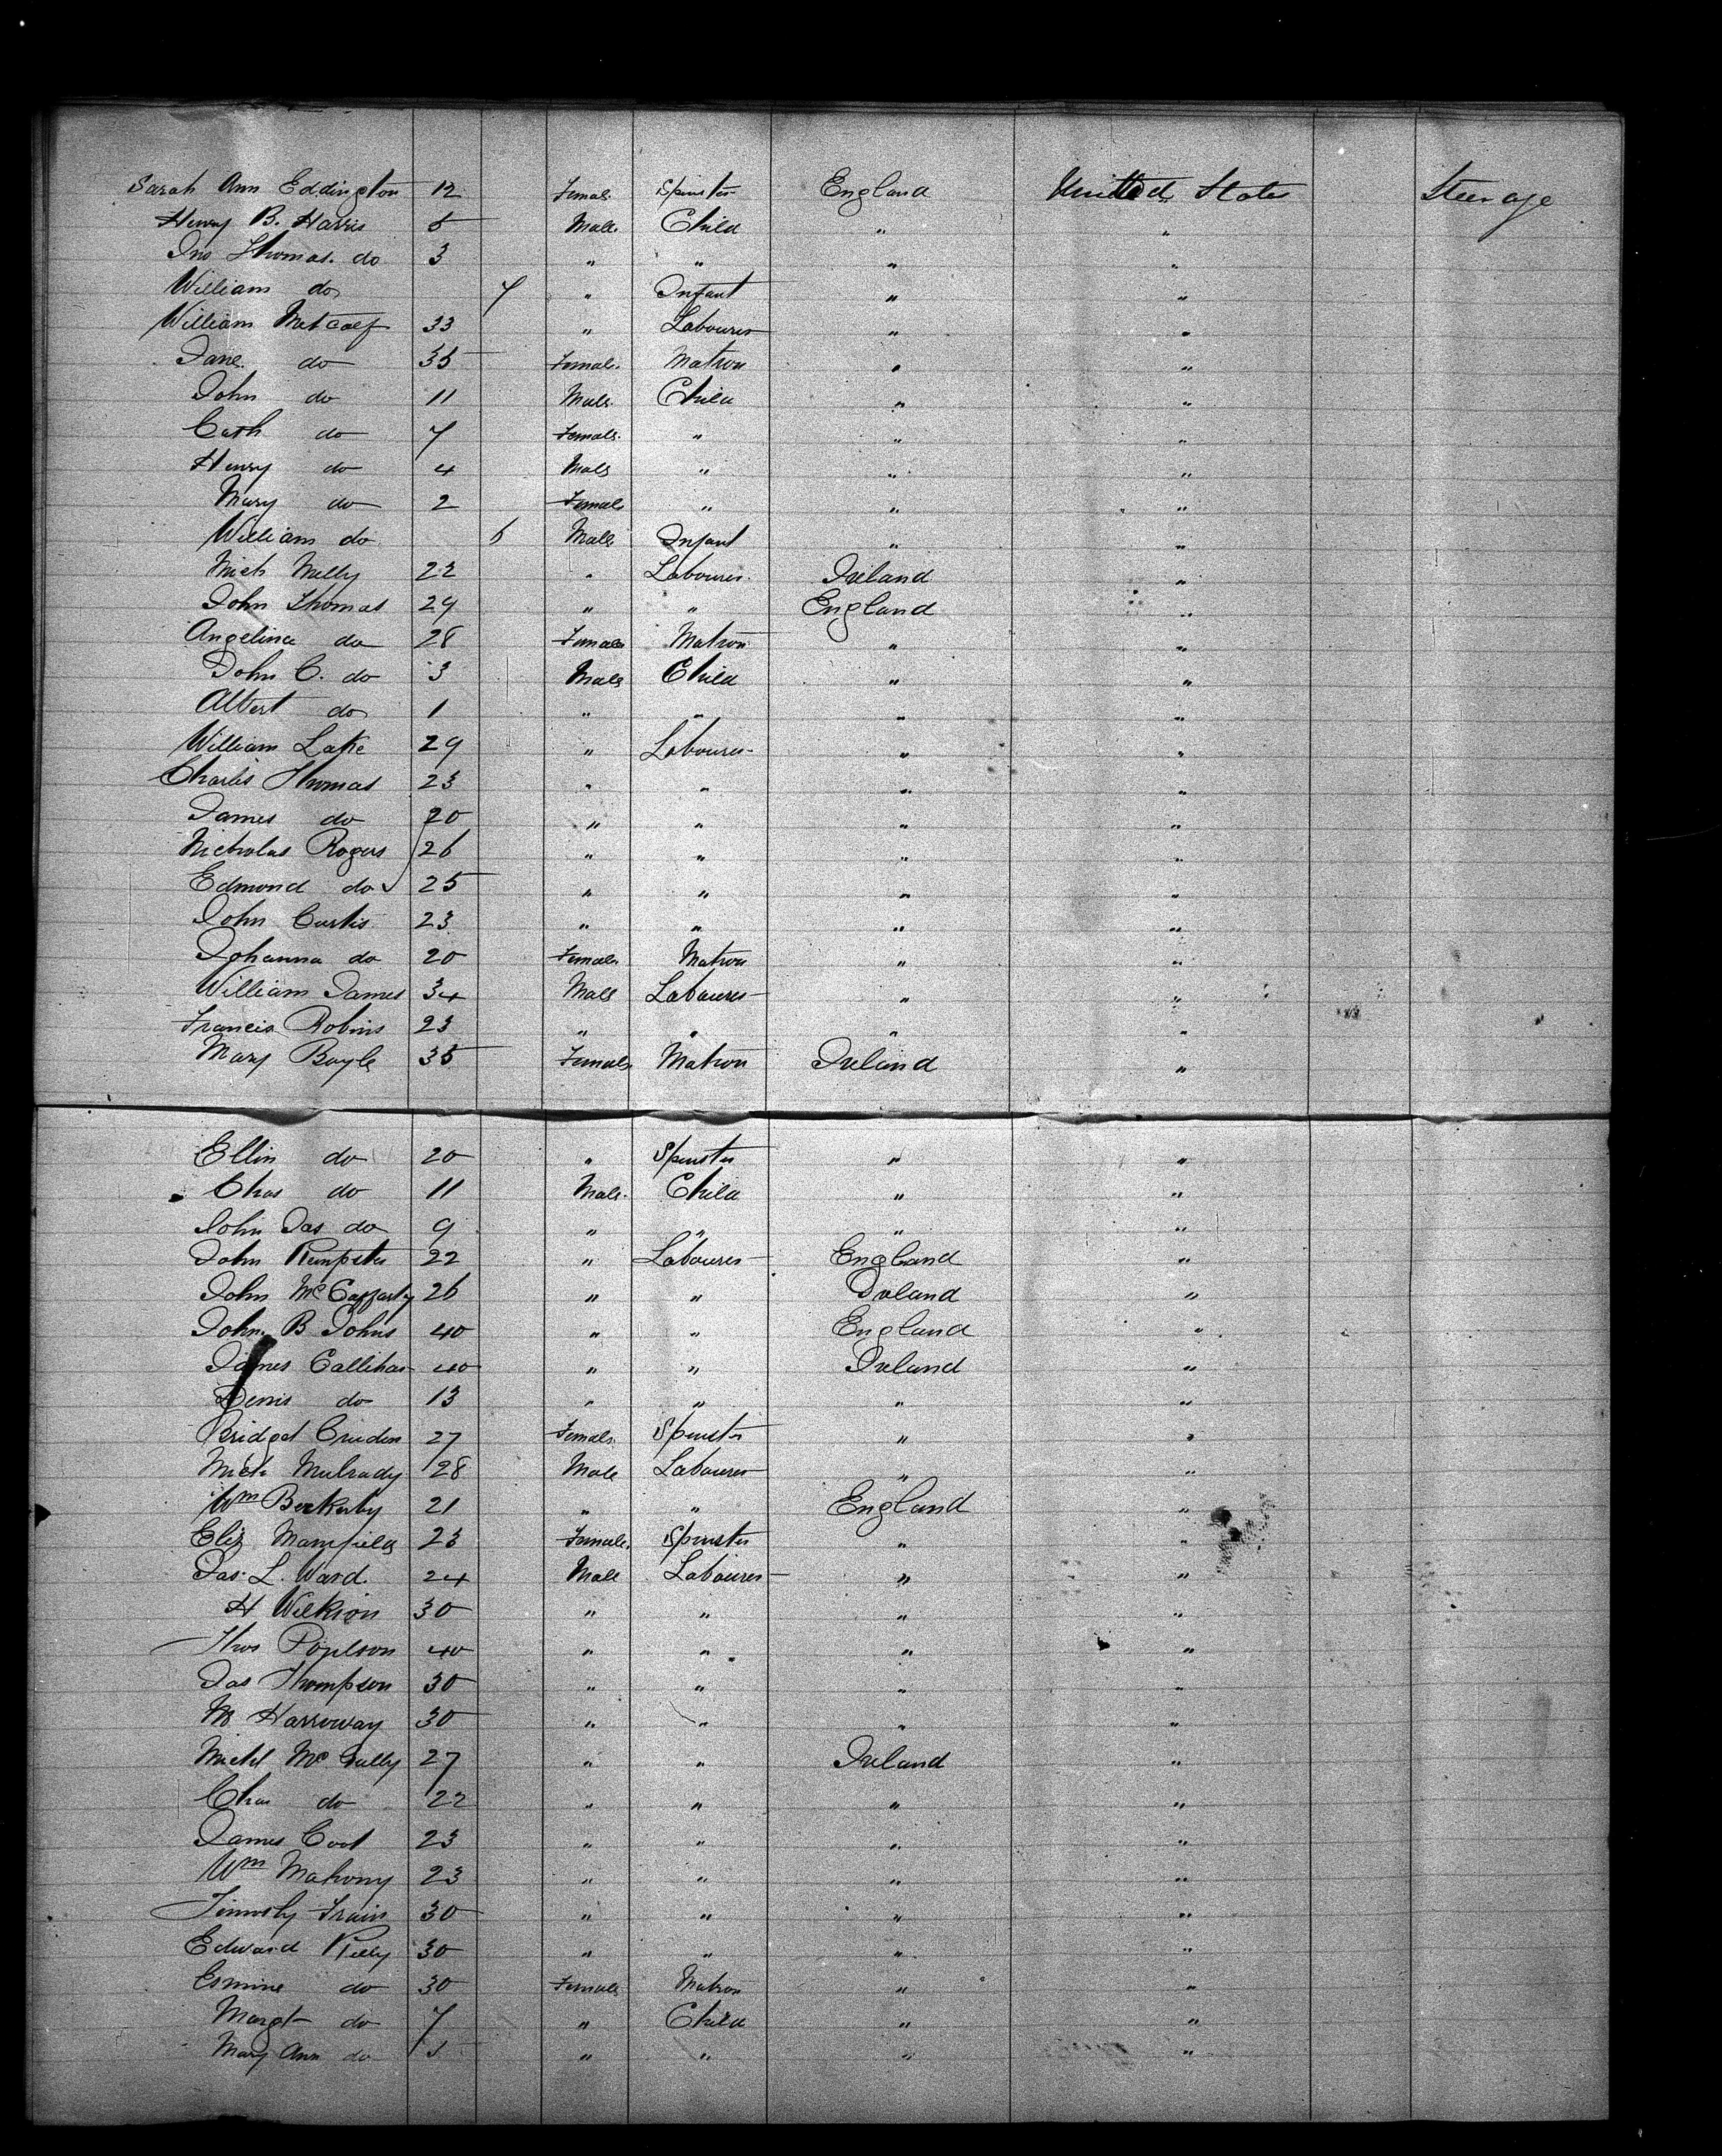 Sarah Ann Eddington 12 Female Spinster England United States Steerage
Henry B. Harris 5 Male Child " "
Jno Thomas do 3 " " " "
William do 7 " Infant " "
William Metcalf 33 " Labourer " "
Jane do 35 Female Matron " "
John do 11 Male Child " "
Cath do 7 Female " " "
Henry do 4 Male " " "
Mary do 2 Female " " "
William do 6 Male Infant " "
Mich 22 " Labourer Ireland "
John Thomas 29 " " England "
Angelina do 28 Female Matron " "
John C. do 3 Male Child " "
Albert do 1 " " " "
William Lake 29 " Labourer " "
Charles Thomas 23 " " " "
James do 20 " " " "
Nicholas Rogers 26 " " " "
Edmond do 25 " " " "
John Curtis 23 " " " "
Johanna do 20 Female Matron " "
William James 34 Male Labourer " "
Francis Robins 23 " " " "
Mary Boyle 35 Female Matron Ireland "
Ellin do 20 " Spinster " "
Chas do 11 Male Child " "
John Jas do 9 " " " "
John 22 " Labourer England "
John McCafferty 26 " " Ireland "
John B Johns 40 " " England "
James Callihan 40 " " Ireland "
Denis do 13 " " " "
Bridget 27 Female Spinster " "
Mich Mulrady 28 Male Labourer " "
Wm 21 " " England "
Eliz 23 Female Spinster " "
Jas. L. Ward 24 Male Labourer " "
H Wilkison 30 " " " "
Thos Poulson 40 " " " "
Jas Thompson 30 " " " "
M Harroway 30 " " " "
Michl 27 " " Ireland "
Chas do 22 " " " "
James 23 " " " "
Wm Mahony 23 " " " "
Timothy 30 " " " "
Edward 30 " " " "
do 30 Female Matron " "
Margt do 7 " Child " "
Mary Ann do " " " "